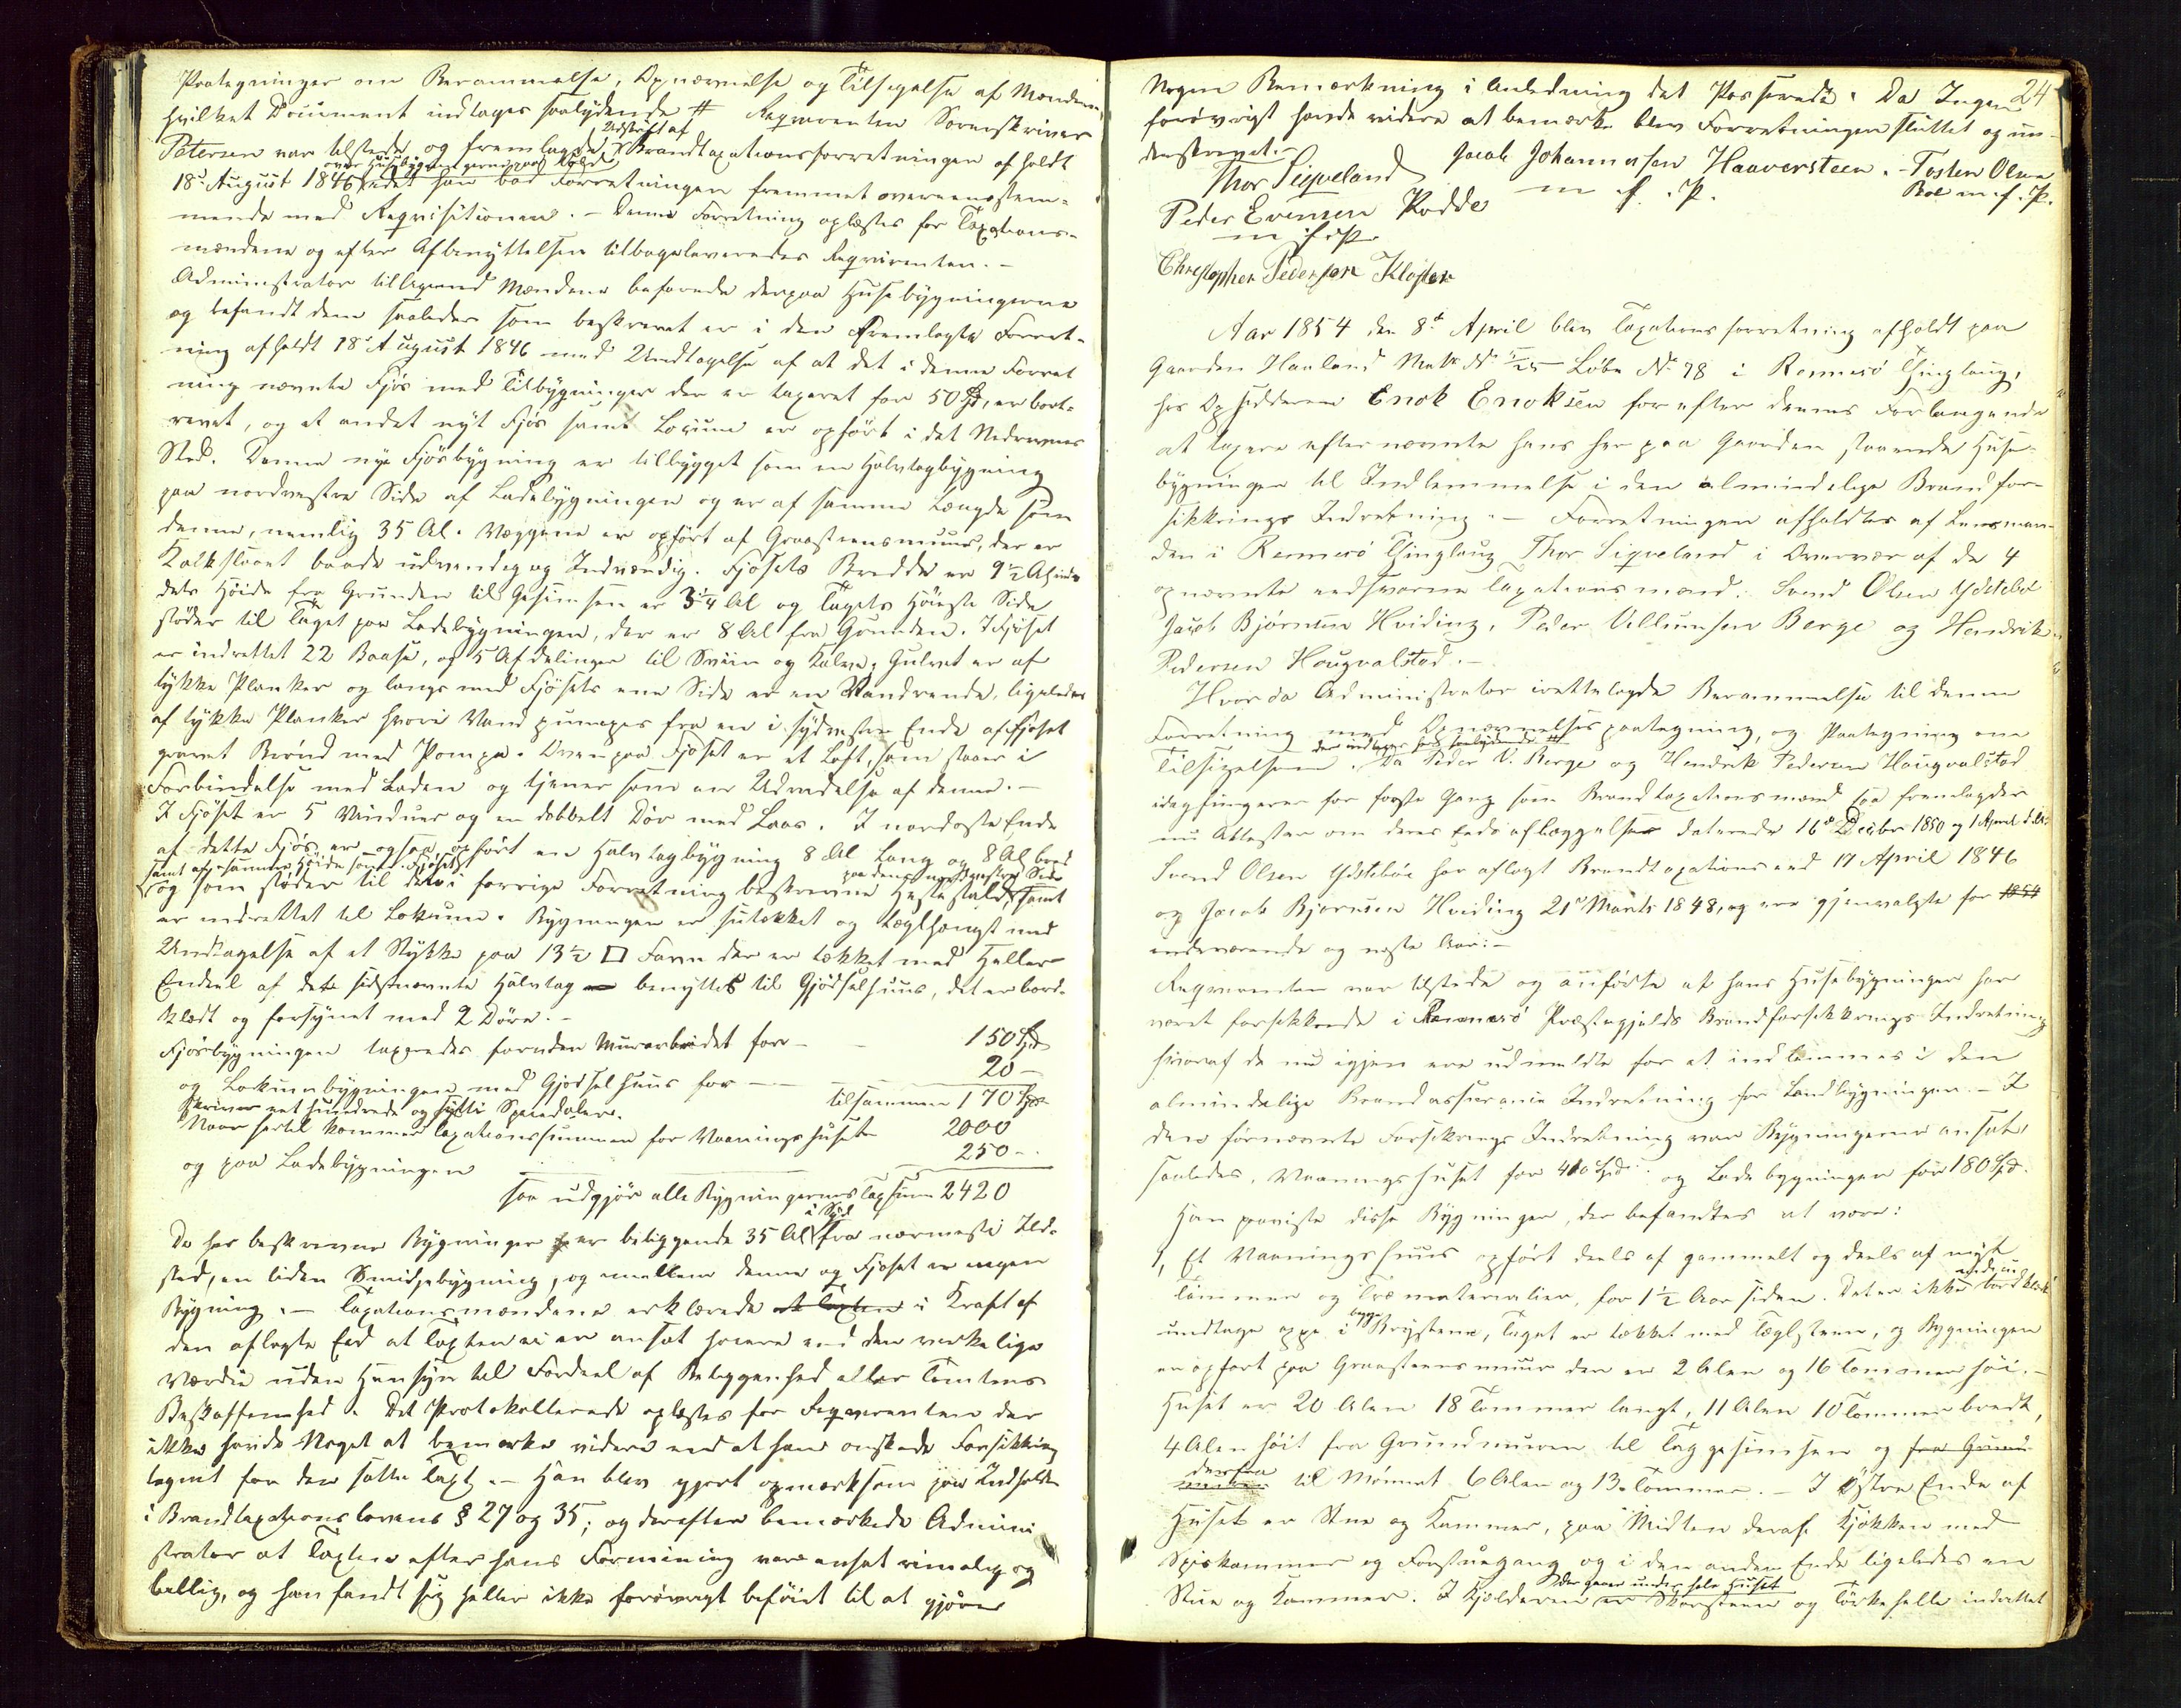 Paategninger om Berammelse, Opnævnelse og Tilsigelse af Mændene,
hvilket Document indtages saalydende # Reqvirenten Sorenskriver
Petersen var tilstede og fremlagde Udskrift af Brandtaxationsforretningen afholdt
over Husbygningerne paa
18de August 1846, idet han bad Forretningen fremmet overeenstem-
mende med Reqvisitionen. – Denne Forretning oplæstes for Taxations-
mændene og efter Afbenyttelsen tilbageleveredes Reqvirenten. –
Administrator tilligemed Mændene beforede derpaa Husebygningerne
og befandt dem saaledes som beskrevet er i den fremlagte Forret-
ning afholdt 18de August 1846 med Undtagelse af at det i denne Forret
ning nævnte Fjøs med Tilbygninger der er taxeret for 50 Spd, er bort-
revet, og et andet nyt Fjøs samt Locum er opført i det Nedrevnes
Sted. Denne nye Fjøsbygning er tilbygget som en Halvtagbygning
paa nordvestre Side af Ladebygningen og er af samme Længde som
denne, nemlig 35 Al. Væggene er opført af Graasteensmuur, der er
Kalkslaaet baade udvendig og Indvendig. Fjøsets Bredde er 9½ Al
dets Høide fra Grunden til Gesimsen er 3¼ Al og Tagets Høieste Side
støder til Taget paa Ladebygningen, der er 8 Al fra Grunden. I Fjøset
er indrettet 22 Baase, og 5 Afdelinger til Sviin og Kalve, Gulvet er af
tykke Planker og langs med Fjøsets ene Side er en Vandrende, ligeledes
af tykke Planker hvori Vand pumpes fra en i sydvestre Ende af Fjøset
gravet Brønd med Pompe. Ovenpaa Fjøset er et Loft, som staaer i
Forbindelse med Laden og tjener som en Udvidelse af denne. –
I Fjøset er 5 Vinduer og en dobbelt Dør med Laas. I nordøste Ende
af dette Fjøs er ogsaa opført en Halvtagbygning 8 Al Lang og 8 Al bred
samt af samme Høide som Fjøset paa dens Side
og som støder til den i forrige Forretning beskrevne Hestestald samt
er indrettet til Lokum. Bygningen er sutækket og Teglhængt med
Undtagelse af et Stykke paa 13½ □ Favn der er tækket med Heller
Endeel af dette sidstnævnte Halvtag benyttes til Gjødselhuus, det er bord-
klædt og forsynet med 2 Døre. –
Fjøsbygningen taxeredes foruden Murarbeidet for – – 150 Spd
og Lokumbygningen med Gjødselhuus for – – 20 –
tilsammen 170 Spd
skriver eet hundrede og sytti Speciedaler.
Naar hertil kommer Taxationssummen for Vaaningshuset 2000
og paa Ladebygningen 250 –
saa udgjør alle Bygningernes Taxsum 2420
De her beskrevne Bygninger er beliggende 35 Al i Syd fra nærmeste Ild-
sted, en liden Smidjebygning, og mellem denne og Fjøset er ingen
Bygning. – Taxationsmændene erklærede i Kraft af
den aflagte Eed at Taxten ei er ansat høiere end den virkelige
Værdie uden Hensyn til Fordeel af Beliggenhed eller Tomtens
Beskaffenhed. Det Protokollerede oplæstes for Reqvirenten der
ikke havde Noget at bemærke videre end at han ønskede Forsikkring
tegnet for den satte Taxt. – Han blev gjort opmærksom paa Indholdet
i Brandtaxationslovens § 27 og 35; og derefter bemærkede Admini
strator at Taxten efter hans Formening var ansat rimelig og
billig, og han fandt sig heller ikke forøvrigt beføiet til at gjøre
24
Nogen Bemærkning i Anledning det Passerede. Da Ingen
forøvrigt havde videre at bemærke blev Forretningen sluttet og un-
derskrevet. –
Thor Siqveland Jacob Johannesen Haaversteen. Tosten Olsen
m. f. P. Bøe m. f. P.
Peder Evensen Rodde
m. f. P.
Christopher Pedersen Kloster
Aar 1854 den 8de April blev Taxationsforretning afholdt paa
Gaarden Hauland Matr N Løbe No 78 i Rennesø Thinglaug,
hos Opsidderen Enok Enoksen for efter dennes Forlangende
at taxere efternævnte hans her paa Gaarden staaende Huse-
bygninger til Indlemmelse i den almindelige Brandfor-
sikkrings Indretning. – Forretningen afholdtes af Lensman-
den i Rennesø Thinglaug Thor Siqveland i Overvær af de 4
opnævnte edsvorne Taxationsmænd: Svend Olsen Ydstebø
Jacob Bjørnsen Hviding, Peder Villumsen Berge og Hendrik
Pedersen Hougvalstad. –
Hvor da Administrator irettelagde Berammelse til denne
Forretning med Opnævnelsespaategning, og Paategning om
der indtages her saalydende #
Tilsigelsen. Da Peder V. Berge og Hendrik Pedersen Hougvalstad
idag fungerer for første Gang som Brandtaxationsmænd saa fremlagdes
nu Attester om deres Eeds aflæggelser daterede 16de Decbr 1850 og 1 April d. A.
Svend Olsen Ydstebøe har aflagt Brandtaxationseed 17 April 1846
og Jacob Bjørnsen Hviding 21de Marts 1848, og ere gjenvalgte for 1854
indeværende og næste Aar: –
Reqvirenten var tilstede og anførte at hans Husebygninger har
været forsikkrede i Rennesø Præstegjelds Brandforsikkrings Indretning
hvoraf de nu igjen ere udmeldte for at indlemmes i den
almindelige Brandassurance Indretning for Landbygninger. – I
den førnævnte Forsikrings Indretning var Bygningerne ansat
saaledes, Vaaningshuset for 400 Spd og Ladebygningen for 180 Spd.
Han paaviste disse Bygninger, der befandtes at være:
1, Et Vaaningshuus opført deels af gammelt og deels af nyt
Tømmer og Træmaterialier, for 1½ Aar siden. Det er ikke bordklædt
undtage oppe i begge Brystene, Taget er tækket med Teglsteen, og Bygningen
er opført paa Graasteensmuur der er 2 Alen og 16 Tommer høi. –
Huset er 20 Alen 18 Tommer langt, 11 Alen 10 Tommer bredt,
4 Alen høit fra Grundmuren til Taggesimsen og fra Grund
derfra til Mønnet 6 Alen og 13 Tommer. – I Østre Ende af
Huset er Stue og Kammer, paa Midten deraf Kjøkken med
Spiskammer og Forstuegang og i den anden Ende ligeledes en
der gaaer under hele Huset
Stue og Kammer. I Kjelderen er Skorsteen og Tørkehelle indrettet